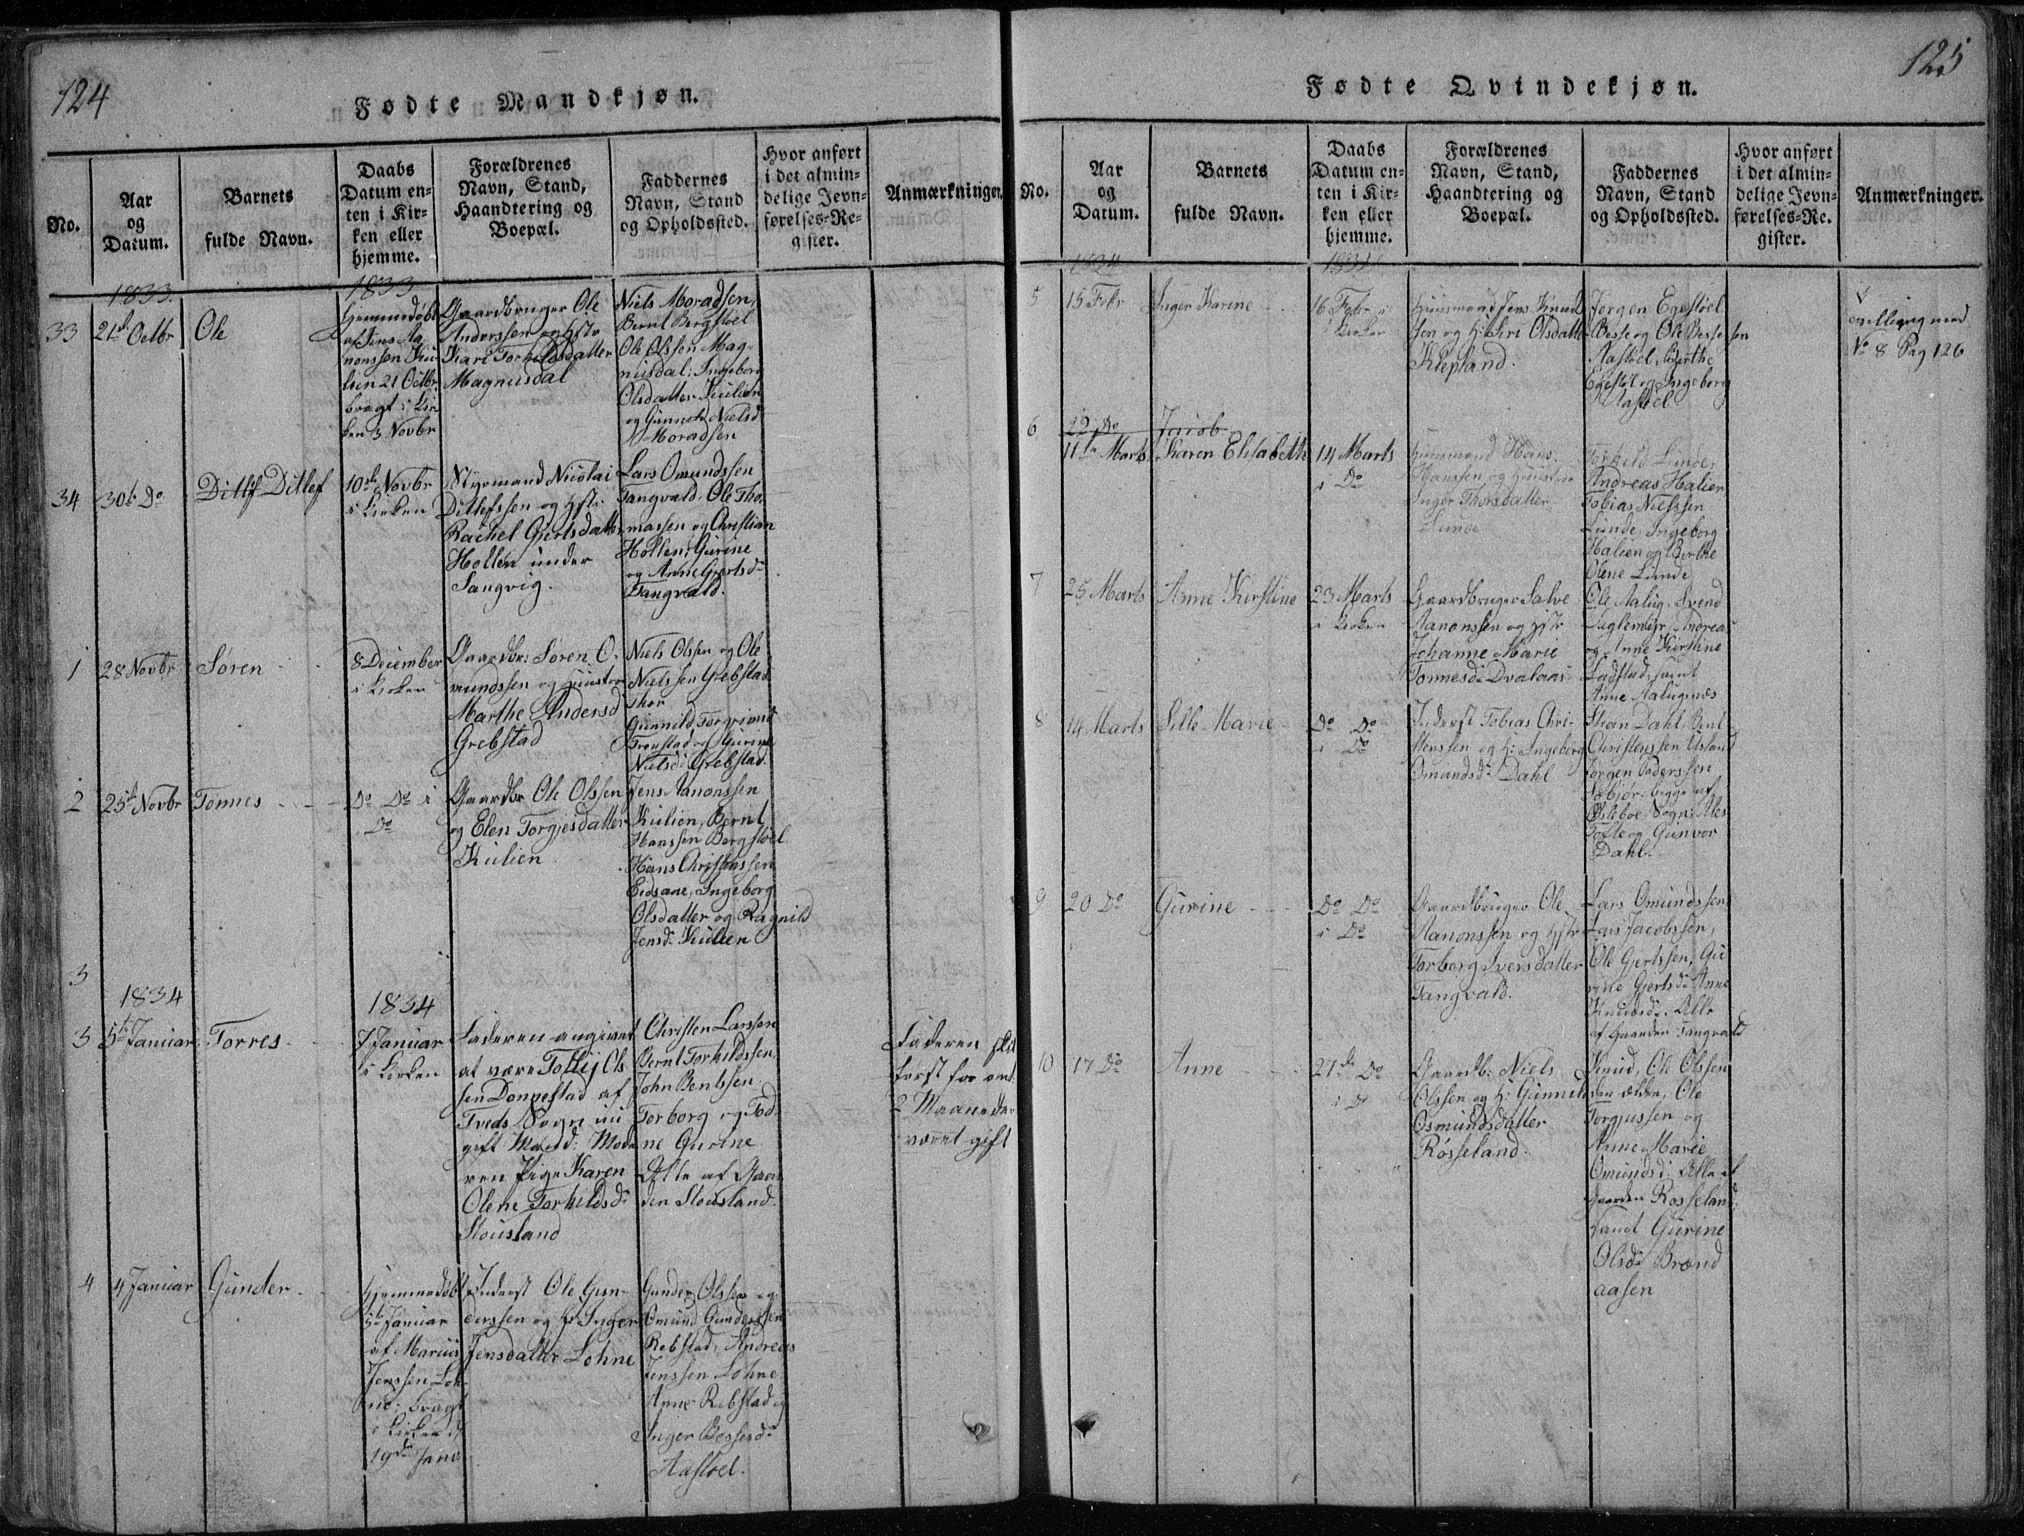 124
Fødte Mandkjøn.
No.
Aar
og
Datum.
Barnets
fulde Navn.
Daabs
Datum en-
ten i Kir-
ken eller
hjemme.
Forældrenes
Navn, Stand,
Haandtering og
Boepæl.
Faddernes
Navn, Stand
og Opholdssted.
Hvor anført
i det almin-
delige Jevn-
førelses-Re-
gister.
Anmærkninger.
1833
1833
33
21de Octbr
Ole
Hjemmedøbt
af Jens Aa-
nonssen Ku-
lien 21 Octbr
bragt i Kir
ken 3 Novbr
Gaardbruger Ole
Anderssen og Hstr
Kari Torkildsdatter
Magnusdal
Niels Moradsen,
Bernt Bergstøel
Ole Olssen Mag-
nusdal; Ingeborg
Olsdatter Kulien
og Gunneld Nielsd
Moradsen
34
30te Do
Ditlif Ditlef
10de Novbr
i Kirken
Styrmand Nicolai
Ditlefssen og Hstr
Rachel Gjertsdatter
Hollen under
Sangvig.
Lars Omundssen
Tangvald, Ole Tho-
massen og Christian
Hollen; Gurine
og Anne Gjertsd
Tangvald.
1
28 Novbr
Søren
8 December
i Kirken
Gaardbr: Søren O-
mundssen og Huustroe
Marthe Andersd
Grebstad
Niels Olssen og Ole
Nielssen Grebstad
Thor
Gunnild Torgrimsd
Tronstad og Gurine
Nielsd: Grebstad.
2
25de Novbr
Tønnes
Do Do i
Do
Gaardbr Ole Olssen
og Elen Torgjesdatter
Kulien
Jens Aanonssen
Kulien, Bernt
Hanssen Bergstøel
Hans Christenssen
Eidsaae, Ingeborg
Olsdatter og Ragnild
Jensd: Kulien
3
1834
1834
3
5te Januar
Torres
7 Januar
i Kirken
Faderen angivet
at være Tollij Ols
sen Donnestad af
Tveds Sogn nu
gift Mand: Mode
ren Pige Karen
Olene Torkildsd:
Stousland
Christen Larssen
Bernt Torkildssen,
John Bentssen
Torborg og Tod
ne Gurine
Alle af Gaar
den Stousland.
Faderen skal
først for omt
2 Maaneder
været gift
4
4 Januar
Gunder
Hjemmedøbt
5te Januar
af Marius
Jenssen Loh
ne; bragt
i Kirken d
19de Janr
Inderst Ole Gun-
derssen og H: Inger
Jensdatter Lohne
Gunder Olssen og
Omund Gunderssen
Rebstad, Andreas
Jenssen Lohne
Anne Rebstad og
Inger Bessesd:
Aastøel.
125
Fødte Qvindekjøn.
No.
Aar
og
Datum.
Barnets
fulde Navn.
Daabs
Datum en-
ten i Kir-
ken eller
hjemme.
Forældrenes
Navn, Stand,
Haandtering og
Boepæl.
Faddernes
Navn, Stand
og Opholdssted.
Hvor anført
i det almin-
delige Jevn-
førelses-Re-
gister.
Anmærkninger.
1834
1834
5
15 Febr
Inger Karine
16 Febr i
Kirken
Huusmand Jens Knud
sen og H: Siri Olsdatter
Klepland.
Jørgen Egestøel
Besse og Ole Bessesen
Aastøel, Berthe
Egestøl og Ingeborg
Aastøel
tvilling med
No 8 Pag 126
6
22 Do
Jacob
11te Marts
Karen Elisabeth
14 Marts
i Do
Huusmand Hans
Hanssen og Huustroe
Inger Thorsdatter
Lunde
Torkild Lunde,
Andreas Halien
Tobias Nielssen
Lunde, Ingeborg
Halien og Berthe
Olene Lunde
7
25 Marts
Anne Kirstine
23 Marts
i Kirken
Gaardbruger Salve
Aanonssen og Hstr
Johanne Marie
Tønnesd: Dvalaas
Ole Aalug, Svend
Andreas
og Anne Kirstine
Ladstad, samt
Anne Aalugnæs
8
14 Marts
Sille Marie
Do Do
i Do
Inderst Tobias Chri-
stenssen og H: Ingeborg
Omundsd: Dahl
Stian Dahl, Bent
Christenssen Usland
Jørgen Pederssen
begge af
Øsleboe Sogn: Ales
Tofte og Gunvor
Dahl.
9
20 Do
Gurine
Do Do
i Do
Gaardbruger Ole
Aanonssen og Hstr
Torborg Iversdatter
Tangvald.
Lars Omundssen
Lars Jacobssen,
Ole Gjertssen, Gu
rine Gjertsd: Anne
Knudsd: Alle
af Gaarden Tangvald
10
17 Do
Anne
27de Do
i Do
Gaardb: Niels
Olssen og H: Gunnild
Osmundsdatter
Røsseland.
Knud, Ole Olssen
den ældre, Ole
Torgjussen og
Anne Marie
Omundsd: Alle af
Gaarden Rosseland
samt Gurine
Olsd: Brænd
aasen